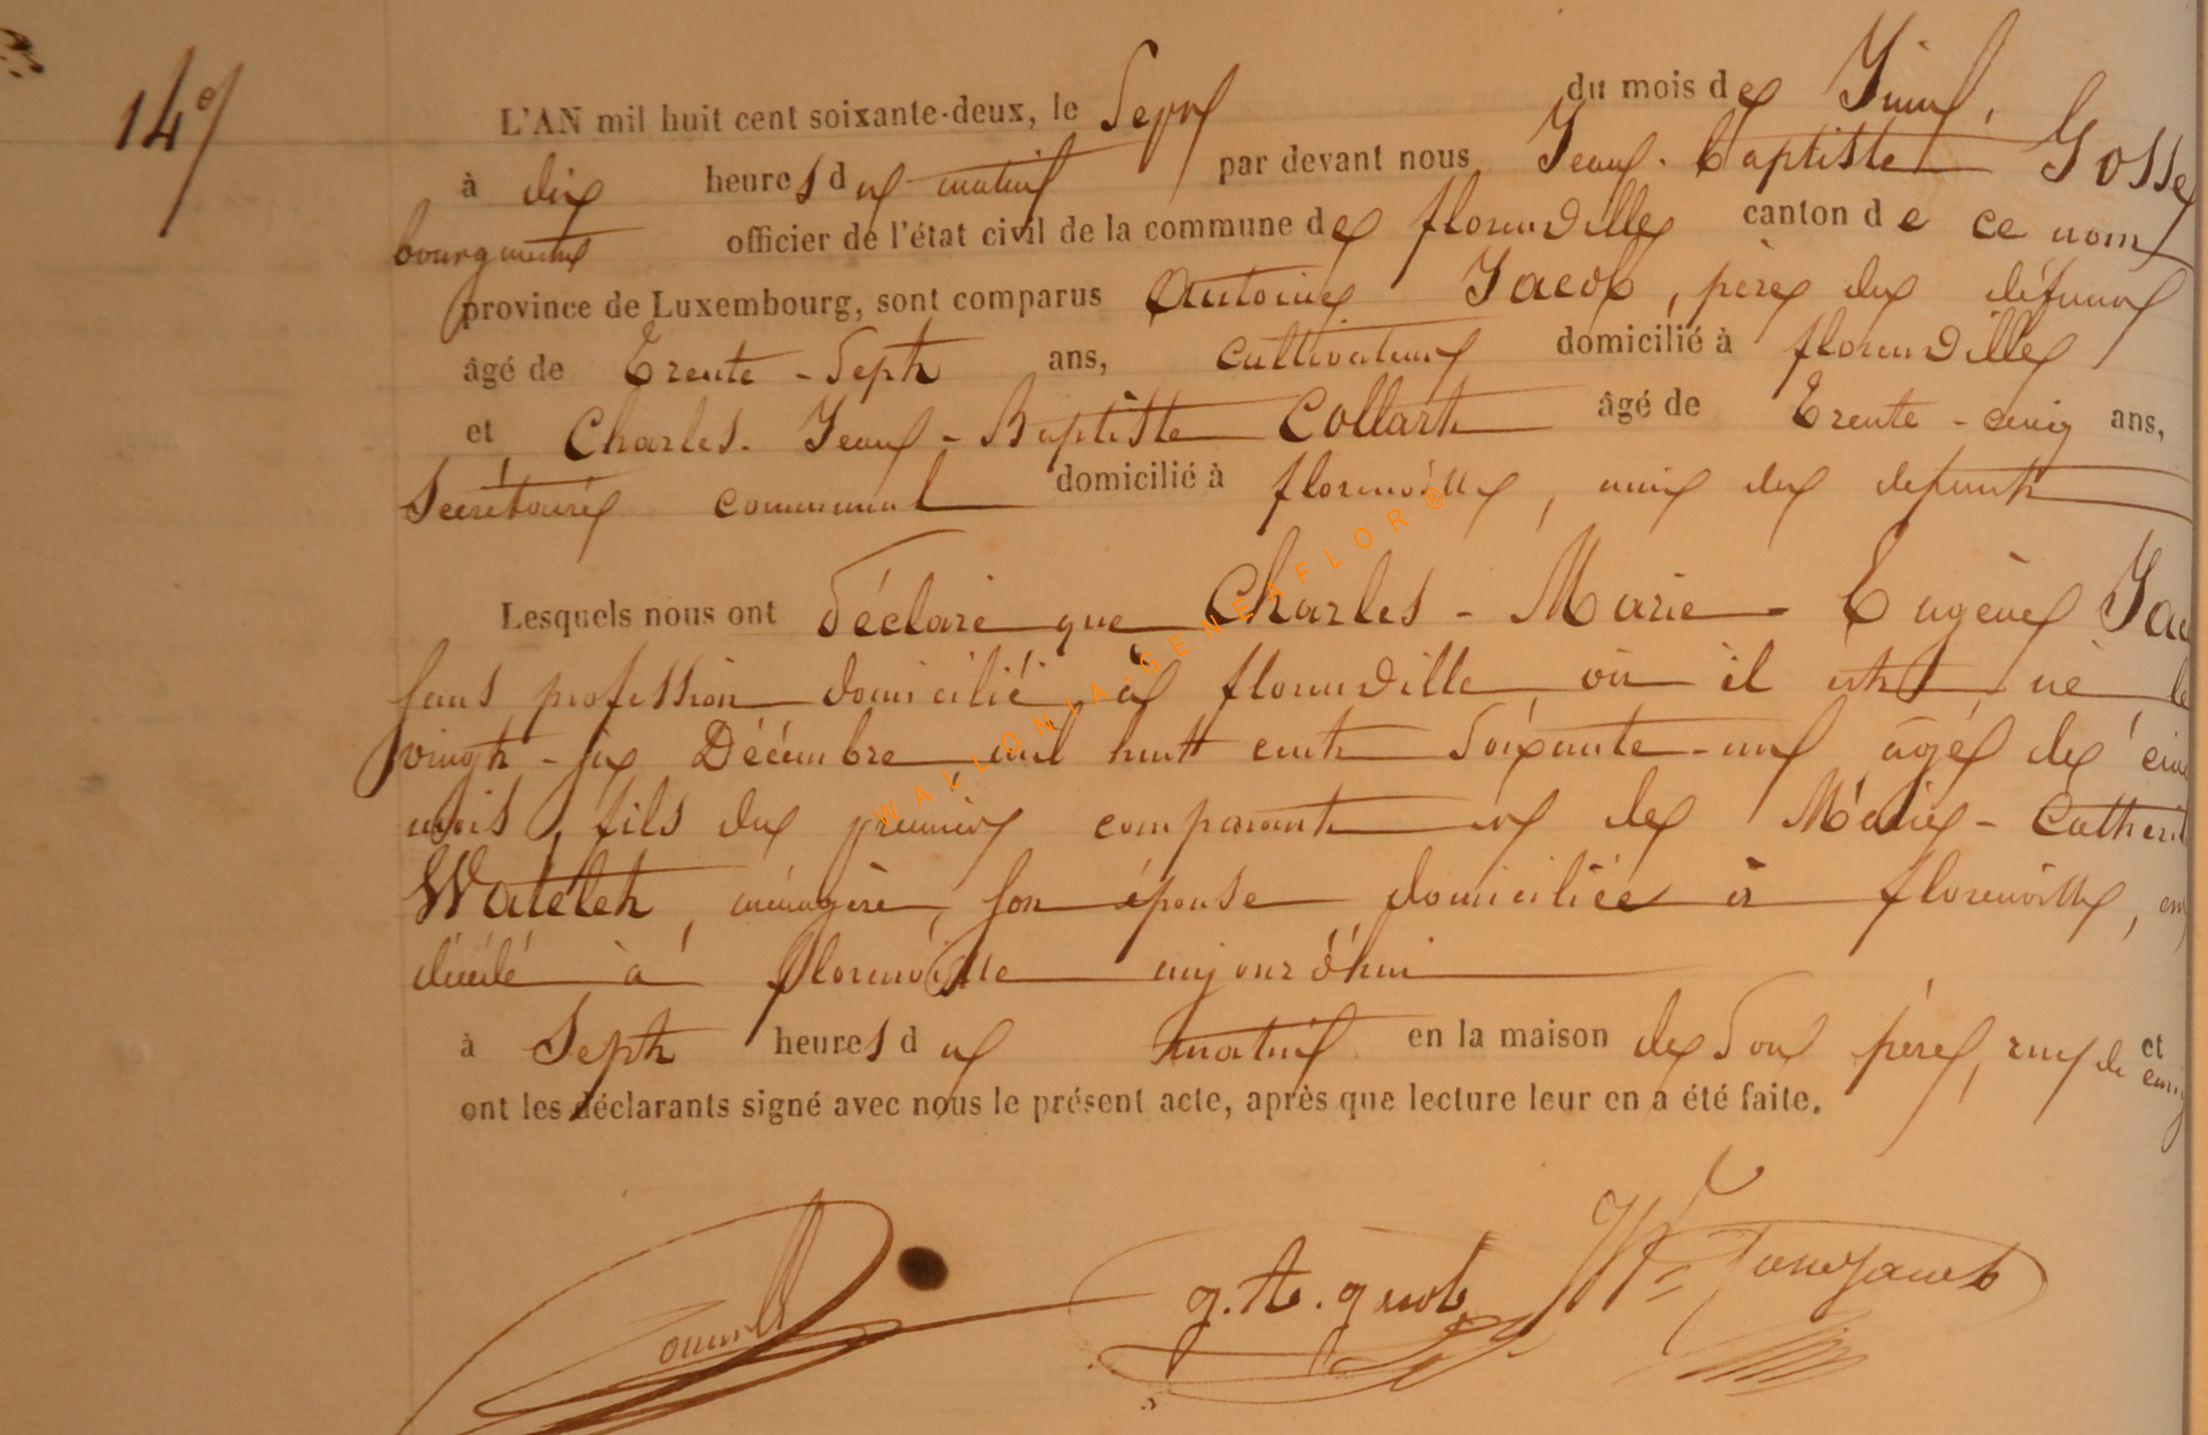 14e/
L'AN mil huit cent soixante-deux, le Sept du mois de Juin,
à dix heures du matin par devant nous Jean-Baptiste Gosse
bourgmestre officier de l'état civil de la commune de florenville canton de ce nom
province de Luxembourg, sont comparus Antoine Jacob, père du défunt
âgé de Trente-Sept ans, cultivateur domicilié à florenville
et Charles-Jean-Baptiste Collart âgé de Trente-cinq ans,
Secrétaire communal domicilié à florenville, ami du defunt
Lesquels nous ont déclaré que Charles-Marie-Eugène Jac
sans profession domicilié à florenville où il est né le
vingt-six Décembre mil huit cent Soixante-un âgé de cinq
mois, fils du premier comparant et de Marie-Catherin
Watelet, ménagère, son épouse domiciliée à florenville, est
décédé à florenville aujourd'hui
à Sept heures du matin en la maison de Son père, rue de et
ont les déclarants signé avec nous le présent acte, après que lecture leur en a été faite.
WALLONIA-GENEAFLOR®